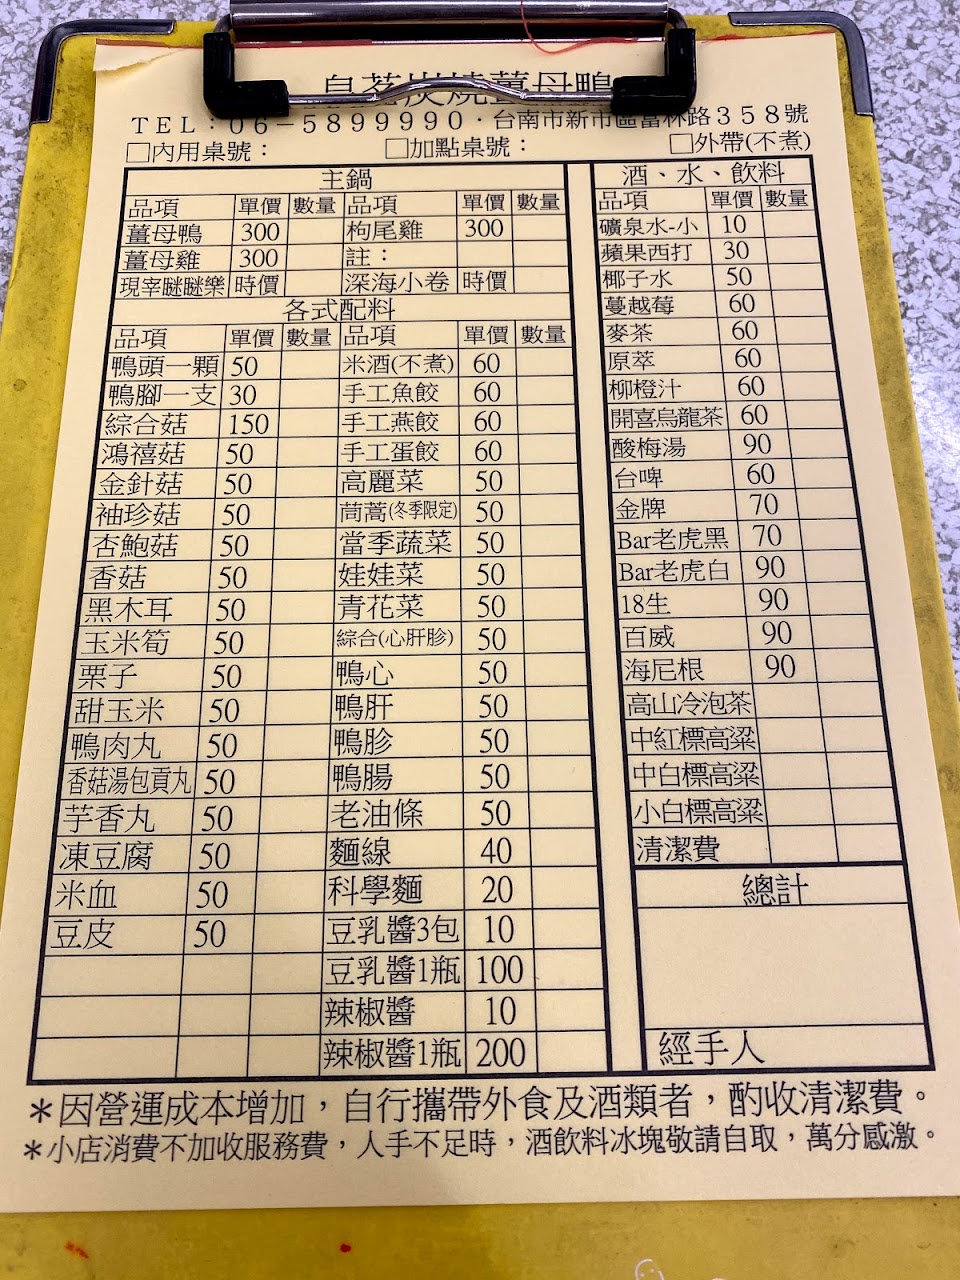 炭燒薑母鴨
TEL:06-5899990·台南市新市區富林路358號
□內用桌號： □加點桌號： □外帶(不煮)
主鍋
品項 單價 數量 品項 單價 數量
薑母鴨 300 枸尾雞 300
薑母雞 300 註：
現宰瞇瞇樂 時價 深海小卷 時價
各式配料
品項 單價 數量 品項 單價 數量
鴨頭一顆 50 米酒(不煮) 60
鴨腳一支 30 手工魚餃 60
綜合菇 150 手工燕餃 60
鴻禧菇 50 手工蛋餃 60
金針菇 50 高麗菜 50
袖珍菇 50 茼蒿(冬季限定) 50
杏鮑菇 50 當季蔬菜 50
香菇 50 娃娃菜 50
黑木耳 50 青花菜 50
玉米筍 50 綜合(心肝胗) 50
栗子 50 鴨心 50
甜玉米 50 鴨肝 50
鴨肉丸 50 鴨胗 50
香菇湯包貢丸 50 鴨腸 50
芋香丸 50 老油條 50
凍豆腐 50 麵線 40
米血 50 科學麵 20
豆皮 50 豆乳醬3包 10
豆乳醬1瓶 100
辣椒醬 10
辣椒醬1瓶 200
酒、水、飲料
品項 單價 數量
礦泉水-小 10
蘋果西打 30
椰子水 50
蔓越莓 60
麥茶 60
原萃 60
柳橙汁 60
開喜烏龍茶 60
酸梅湯 90
台啤 60
金牌 70
Bar老虎黑 70
Bar老虎白 90
18生 90
百威 90
海尼根 90
高山冷泡茶
中紅標高粱
中白標高粱
小白標高粱
清潔費
總計
經手人
＊因營運成本增加，自行攜帶外食及酒類者，酌收清潔費。
＊小店消費不加收服務費，人手不足時，酒飲料冰塊敬請自取，萬分感激。